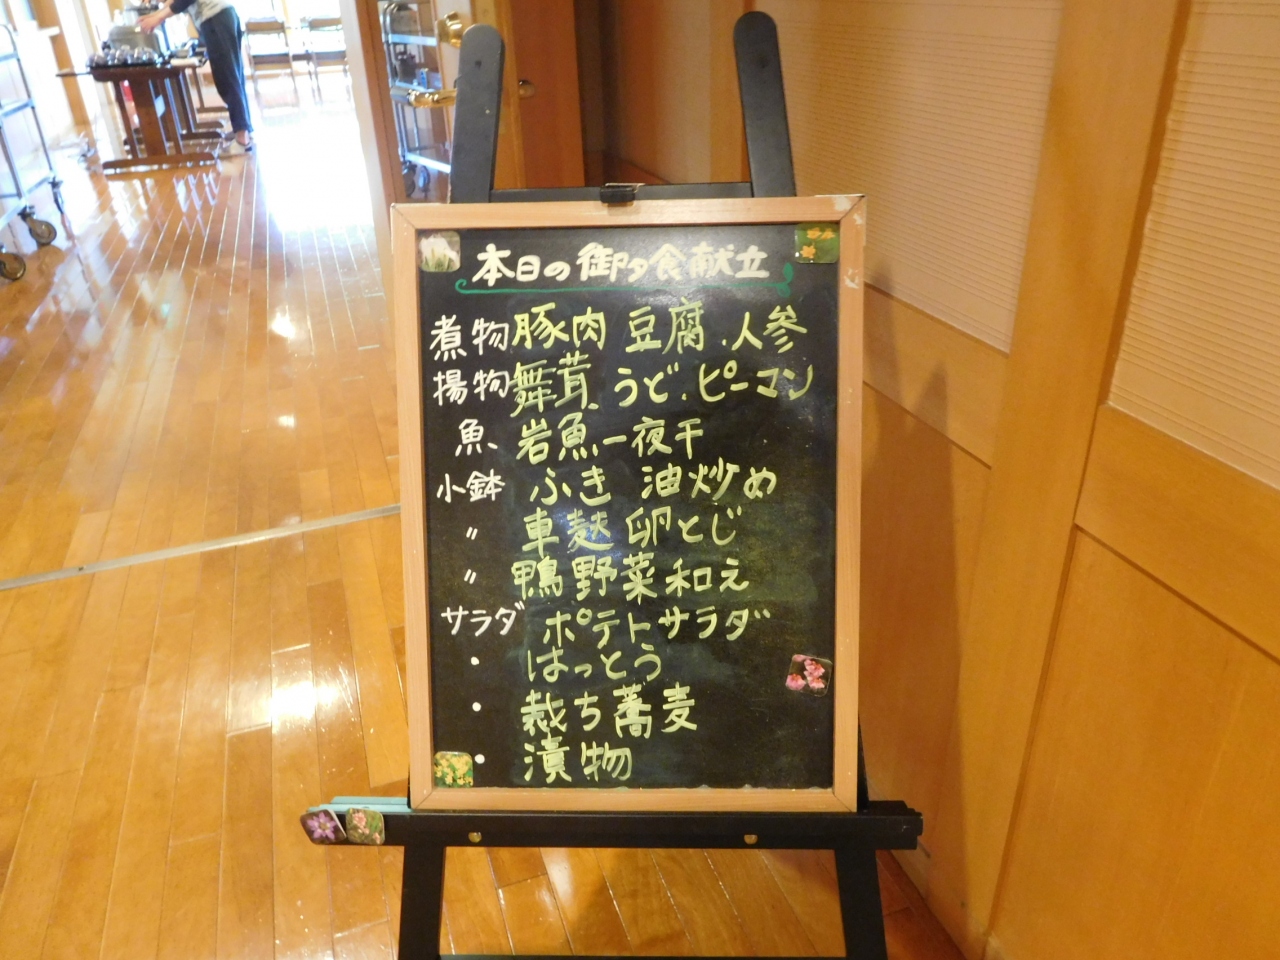 本日の御夕食献立
煮物 豚肉 豆腐、人参
揚物 舞茸、うど、ピーマン
魚、 岩魚一夜干
小鉢 ふき 油炒め
〃 車麩 卵とじ
〃 鴨野菜和え
サラダ ポテトサラダ
・ はっとう
・ 裁ち蕎麦
・ 漬物